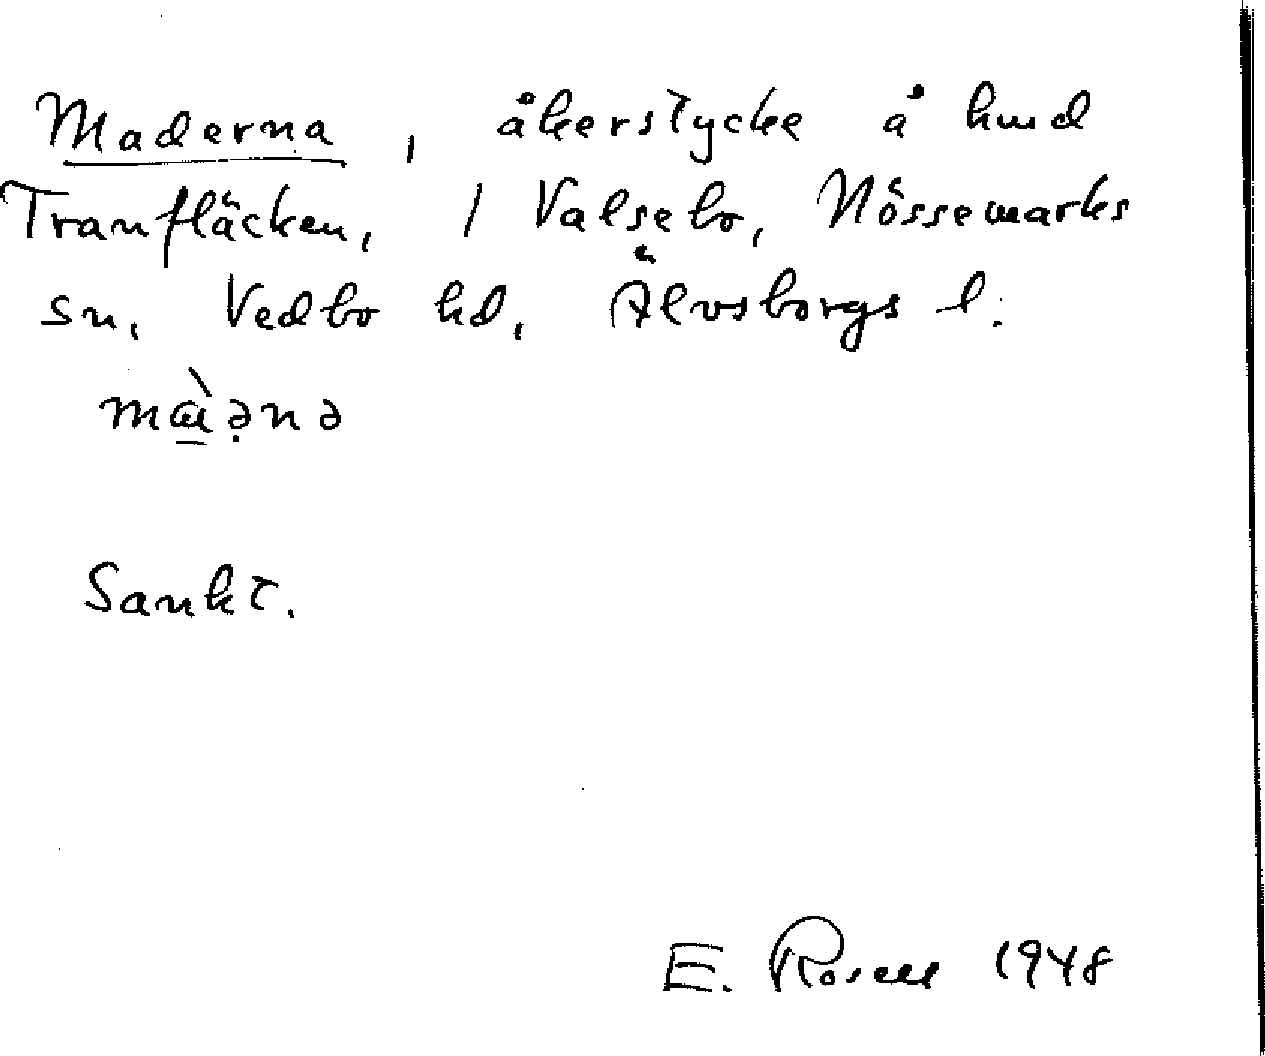 Maderna, åkerstycke å hmd
Tranfläcken, / Valsebo, Nössemarks
sn, Vedbo hd, Älvsborgs l.
mɑ̀ənə
Sankt.
E. Rosell 1948